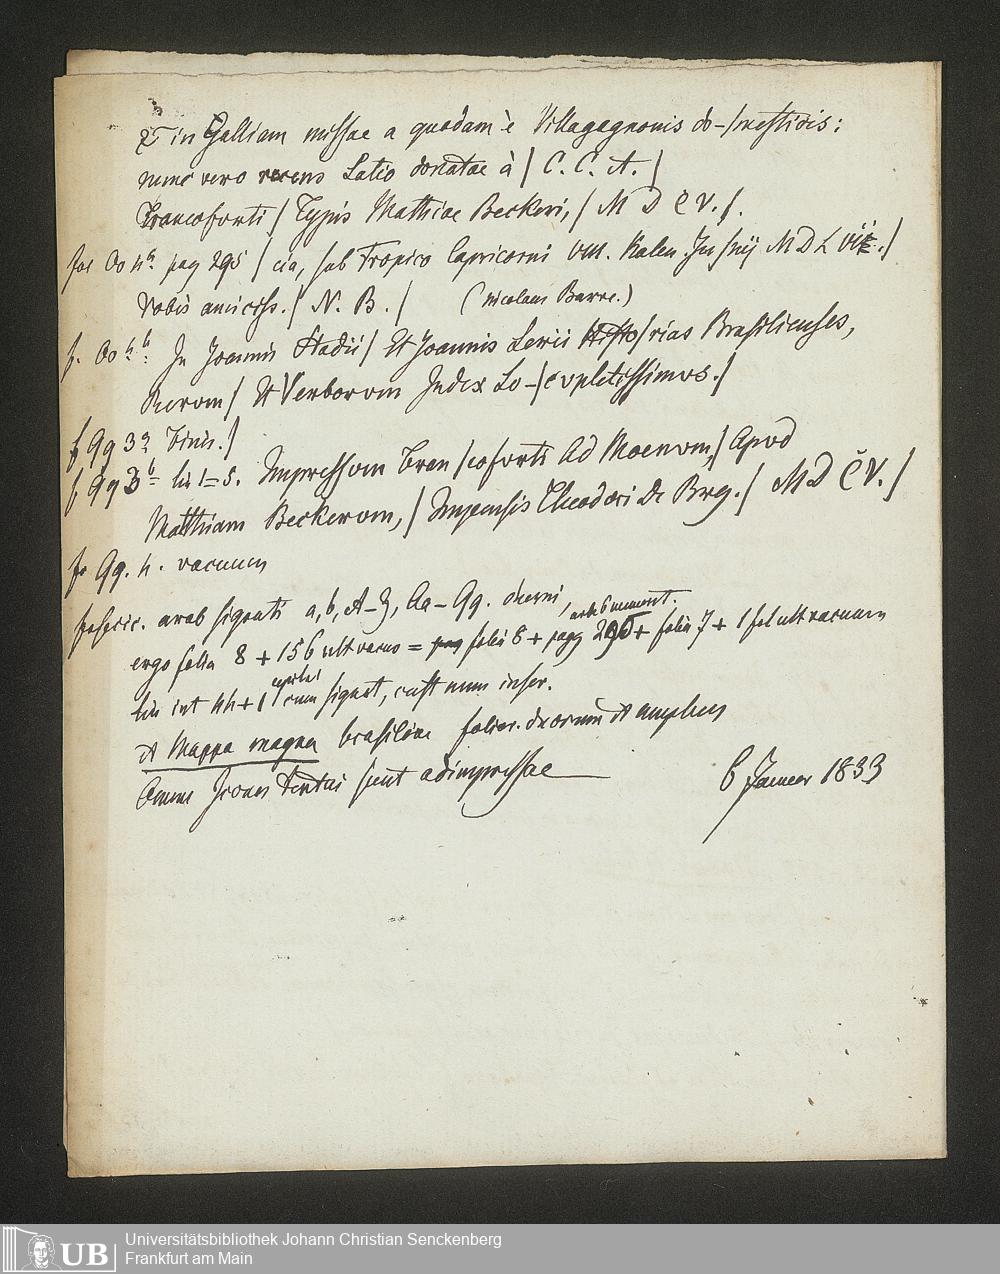 & in Galliam missae a quodam è Villagagnonis do-/mesticis:
nunc vero recens Latio donatae à / C. C. A. /
Francoforti / Typis Mathiae Beckeri, / M D C V. /.
fol Oo 4b pag 295 / cia, sub Tropico Capricorni VIII. Kalen. Ju/nij M D L vi. /
Vobis amiciss. / N. B. / (nicolaus Barre.)
f. Oo 4b: In Joannis Stadii / Et Joannis Lerii Histo/rias Brasilienses,
Rerum / Et Verborum Index Lo-/cupletissimus. /
f Qq 3a Finis. /
f Qq 3b lin 1=5. Impressum Fran/coforti Ad Moenum, / Apud
Matthiam Beckerum, / Impensis Theodori De Bry. / M D C V. /
fo Qq. 4. vacuum
arab signati a, b, A-Z, Aa-Qq.
ergo folia 8 + 156 ult vacuo = folia 8 + pagg 295 + folia 7 + 1 fol ult vacuum
lin int 44 + 1 cum signat, cust num inser.
& Mappa magna brasiliae folior. duorum & amplius
Omnes Icones textui sunt adimpressae
6 Januar 1833
UB Universitätsbibliothek Johann Christian Senckenberg
Frankfurt am Main